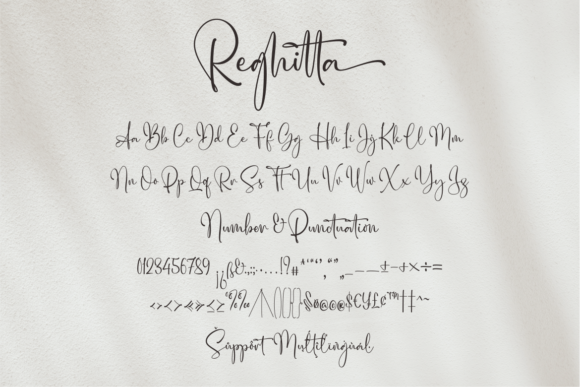 Reghitta
Aa Bb Cc Dd Ee Ff Gg Hh Ii Jj Kk Ll Mm
Nn Oo Pp Qq Rr Ss Tt Uu Vv Ww Xx Yy Zz
Number & Punctuation
0123456789 ß&.,:;·…!?# ‚ „_–—±-+×÷=
‹›<>«»≤≥%‰/\()[]{}§®@©$€¥£¢™†‡^~
Support Multilingual